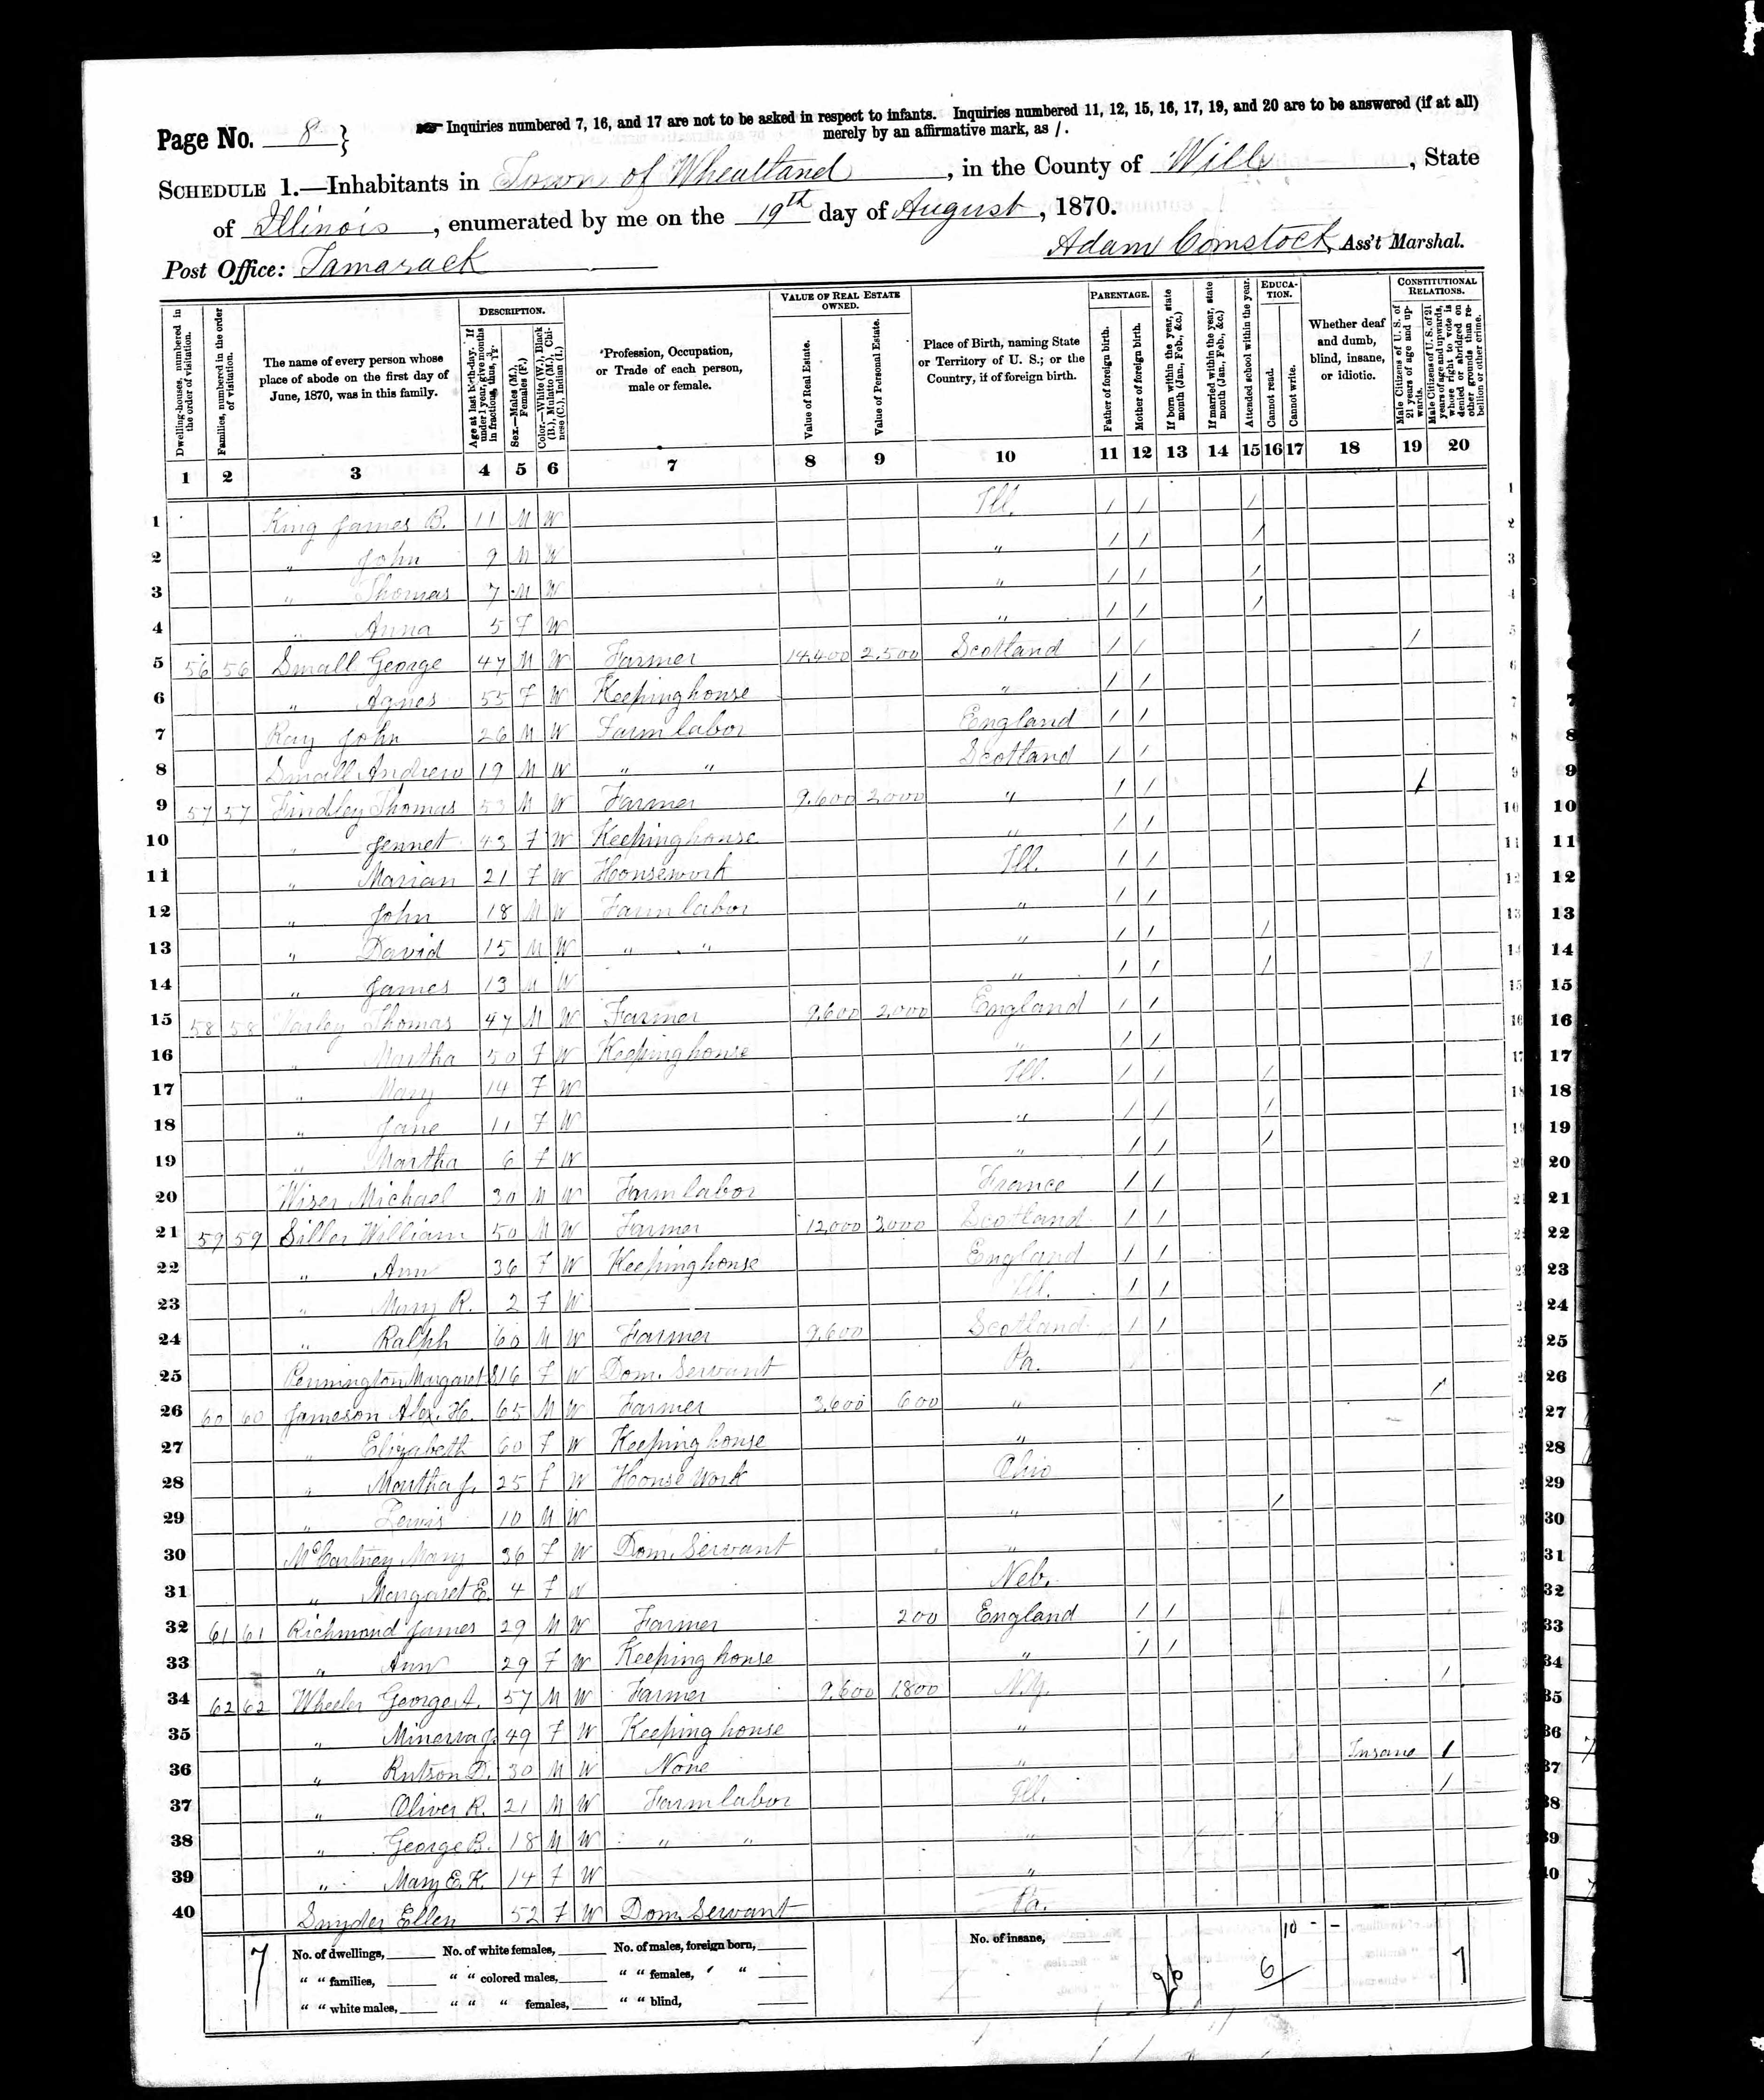 Page No. 8 }
☞ Inquiries numbered 7, 16, and 17 are not to be asked in respect to infants. Inquiries numbered 11, 12, 15, 16, 17, 19, and 20 are to be answered (if at all)
merely by an affirmative mark, as /.
SCHEDULE 1.—Inhabitants in Town of Wheatland, in the County of Will, State
of Illinois, enumerated by me on the 19th day of August, 1870.
Post Office: Tamarack
Adam Comstock, Ass't Marshal.
Dwelling-houses, numbered in the order of visitation.
Families, numbered in the order of visitation.
The name of every person whose place of abode on the first day of June, 1870, was in this family.
DESCRIPTION.
Age at last birth-day. If under 1 year, give months in fractions, thus,
Sex.—Males (M.), Females (F.)
Color.—White (W.), Black (B.), Mulatto (M.), Chinese (C.), Indian (I.)
Profession, Occupation, or Trade of each person, male or female.
VALUE OF REAL ESTATE OWNED.
Value of Real Estate.
Value of Personal Estate.
Place of Birth, naming State or Territory of U. S.; or the Country, if of foreign birth.
PARENTAGE.
Father of foreign birth.
Mother of foreign birth.
If born within the year, state month (Jan., Feb., &c.)
If married within the year, state month (Jan., Feb., &c.)
EDUCATION.
Attended school within the year.
Cannot read.
Cannot write.
Whether deaf and dumb, blind, insane, or idiotic.
CONSTITUTIONAL RELATIONS.
Male Citizens of U. S. of 21 years of age and upwards.
Male Citizens of U. S. of 21 years of age and upwards, whose right to vote is denied or abridged on other grounds than rebellion or other crime.
1 2 3 4 5 6 7 8 9 10 11 12 13 14 15 16 17 18 19 20
1 King James B. 11 M W Ill. / / /
2 " John 9 M W " / / /
3 " Thomas 7 M W " / / /
4 " Anna 5 F W " / / /
5 56 56 Small George 47 M W Farmer 14,400 2,500 Scotland / / /
6 " Agnes 55 F W Keeping house " / /
7 Ray John 26 M W Farm labor England / /
8 Small Andrew 19 M W " " Scotland / /
9 57 57 Findley Thomas 53 M W Farmer 9,600 2,000 " / / /
10 " Jennet 43 F W Keeping house " / /
11 " Marian 21 F W Housework Ill. / /
12 " John 18 M W Farm labor " / /
13 " David 15 M W " " " / / /
14 " James 13 M W " / / /
15 58 58 Varley Thomas 47 M W Farmer 9,600 2,000 England / / /
16 " Martha 50 F W Keeping house " / /
17 " Mary 14 F W Ill. / / /
18 " Jane 11 F W " / / /
19 " Martha 6 F W " / / /
20 Wiser Michael 30 M W Farm labor France / /
21 59 59 Siller William 50 M W Farmer 12,000 3,000 Scotland / /
22 " Ann 36 F W Keeping house England / /
23 " Mary R. 2 F W Ill. / /
24 " Ralph 60 M W Farmer 9,600 Scotland / /
25 Pennington Margaret 16 F W Dom. Servant Pa.
26 60 60 Jameson Alex. H. 65 M W Farmer 3,600 600 " /
27 " Elizabeth 60 F W Keeping house "
28 " Martha J. 25 F W House Work Ohio
29 " Lewis 10 M W " /
30 McCartney Mary 36 F W Dom. Servant "
31 " Margaret E. 4 F W Neb.
32 61 61 Richmond James 29 M W Farmer 200 England / /
33 " Ann 29 F W Keeping house " / /
34 62 62 Wheeler George A. 57 M W Farmer 9,600 1,800 N.Y. /
35 " Minerva J. 49 F W Keeping house "
36 " Rutson D. 30 M W None " Insane /
37 " Oliver R. 21 M W Farm labor Ill. /
38 " George B. 18 M W " " "
39 " Mary E. K. 14 F W "
40 Snyder Ellen 52 F W Dom. Servant Pa.
7 No. of dwellings, No. of white females, No. of males, foreign born, No. of insane, 10 - -
" " families, " " colored males, " " females, " " 6 1
" " white males, " " " females, " " blind,